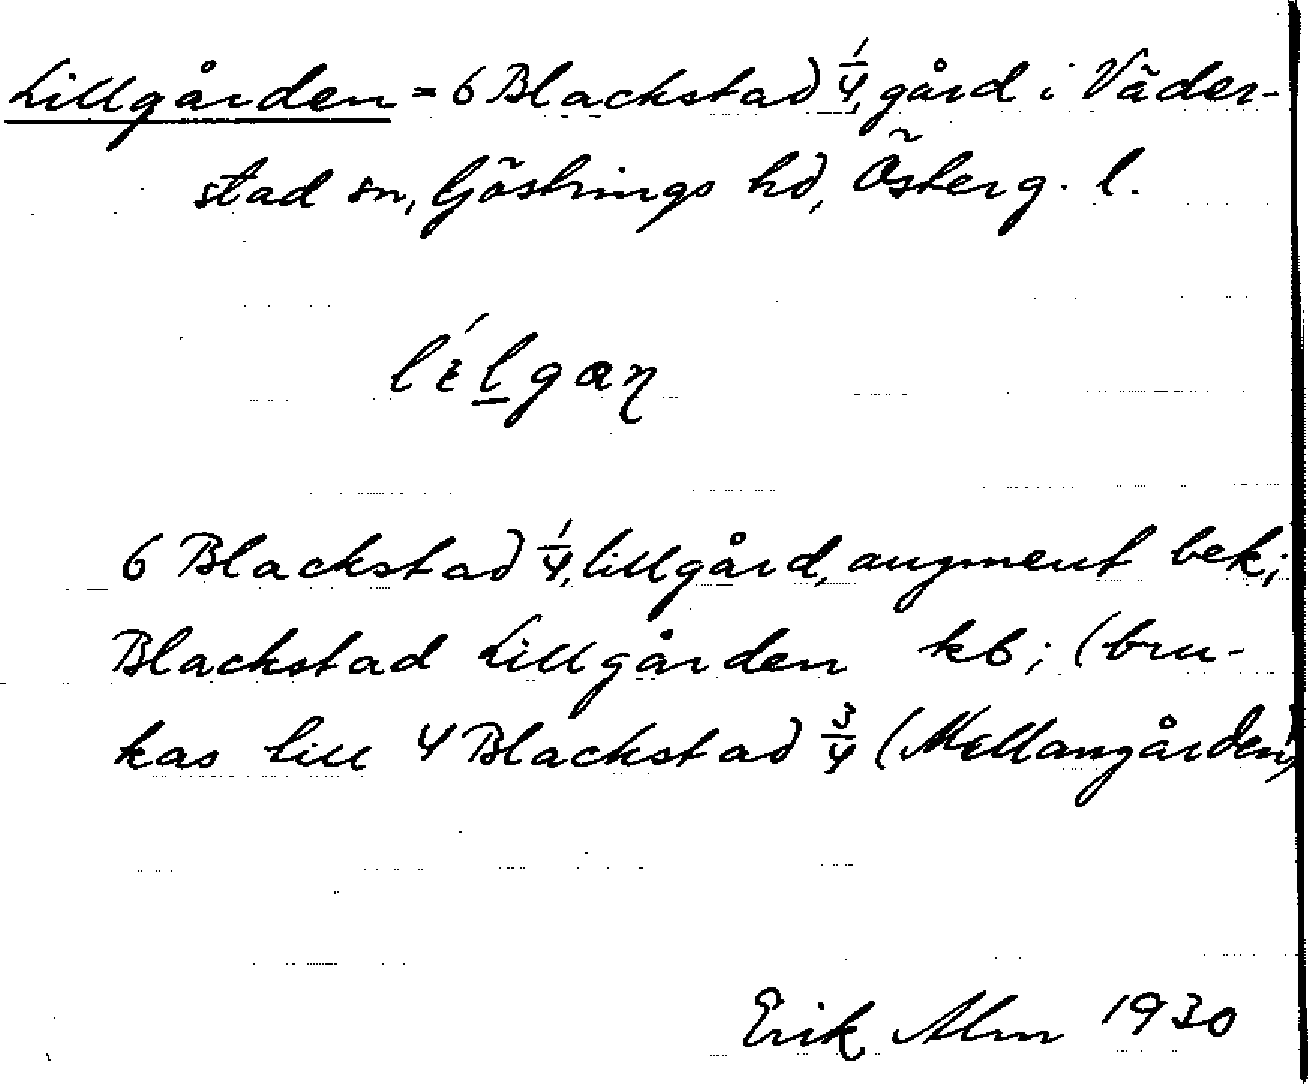 Lillgården = 6 Blackstad 1/4, gård i Väder-
stad sn, Göstrings hd, Österg. l.
6 Blackstad 1/4, lillgård, augment bek;
Blackstad Lillgården kb; (bru-
kas till 4 Blackstad 3/4 (Mellangården)
Erik Alm 1930